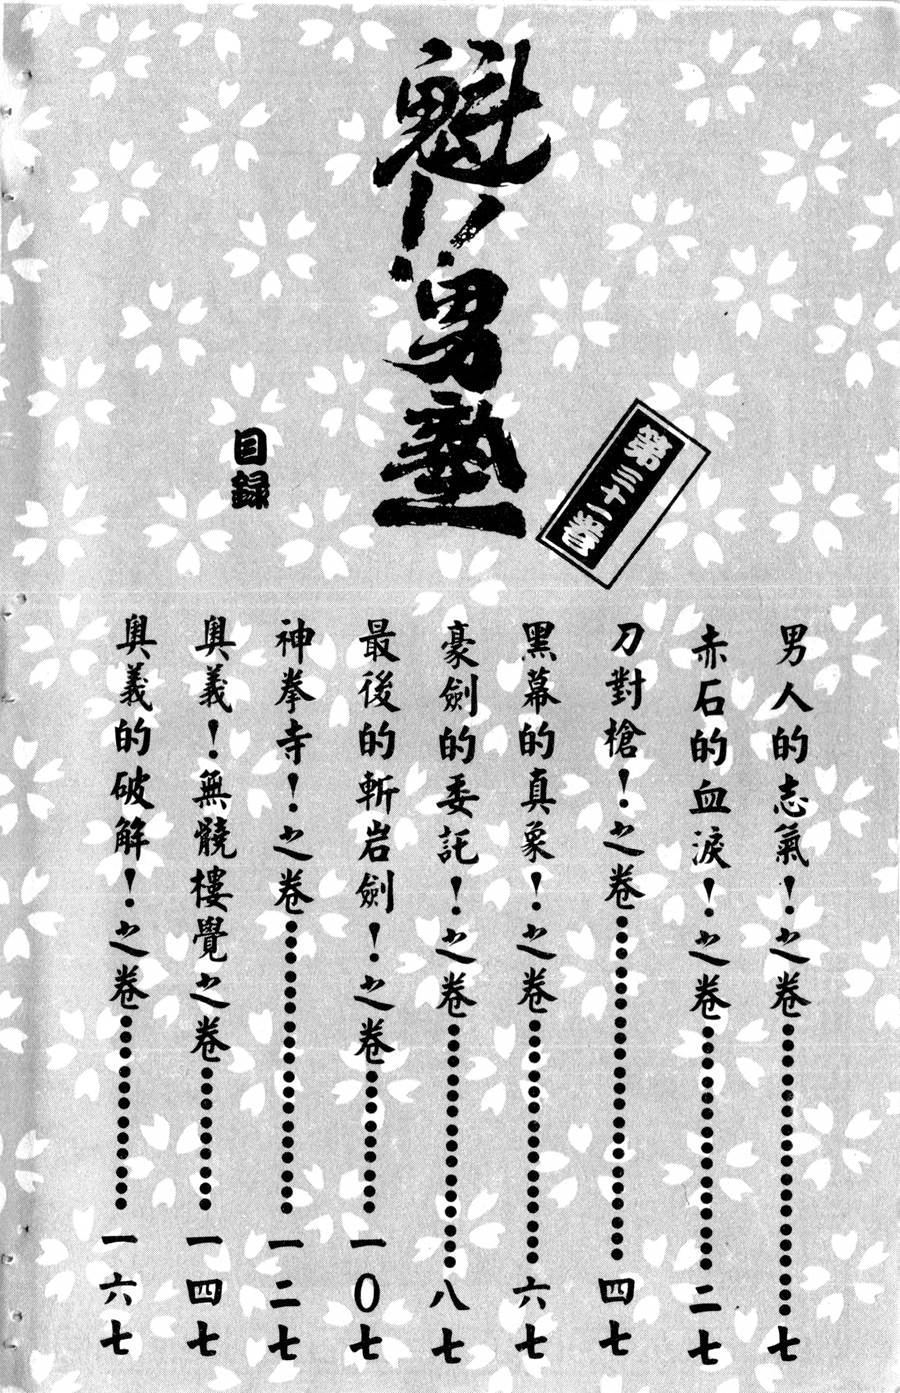 魁!!男塾
第三十一巻
目録
男人的志氣!之卷………七
赤石的血淚!之卷………二七
刀對槍!之卷………四七
黑幕的真象!之卷………六七
豪劍的委託!之卷………八七
最後的斬岩劍!之卷………一〇七
神拳寺!之卷………一二七
奧義!無髐樓覺之卷………一四七
奧義的破解!之卷………一六七